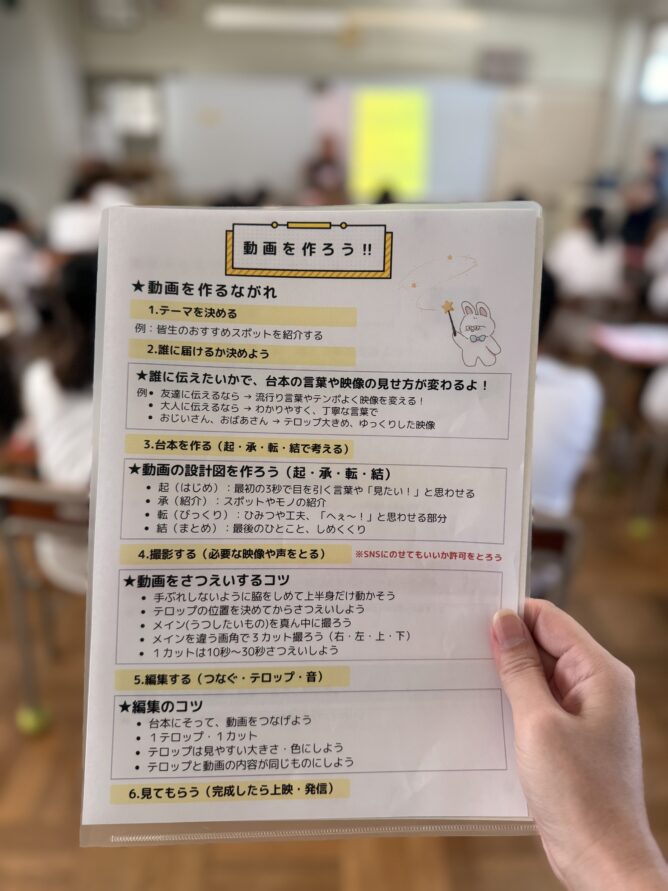 動画を作ろう!!
★動画を作るながれ
1.テーマを決める
例：皆生のおすすめスポットを紹介する
2.誰に届けるか決めよう
★誰に伝えたいかで、台本の言葉や映像の見せ方が変わるよ！
例• 友達に伝えるなら → 流行り言葉やテンポよく映像を変える！
• 大人に伝えるなら → わかりやすく、丁寧な言葉で
• おじいさん、おばあさん → テロップ大きめ、ゆっくりした映像
3.台本を作る（起・承・転・結で考える）
★動画の設計図を作ろう（起・承・転・結）
• 起（はじめ）：最初の3秒で目を引く言葉や「見たい！」と思わせる
• 承（紹介）：スポットやモノの紹介
• 転（びっくり）：ひみつや工夫、「へぇ〜！」と思わせる部分
• 結（まとめ）：最後のひとこと、しめくくり
4.撮影する（必要な映像や声をとる） ※SNSにのせてもいいか許可をとろう
★動画をさつえいするコツ
• 手ぶれしないように脇をしめて上半身だけ動かそう
• テロップの位置を決めてからさつえいしよう
• メイン(うつしたいもの)を真ん中に撮ろう
• メインを違う画角で３カット撮ろう（右・左・上・下）
• １カットは10秒〜30秒さつえいしよう
5.編集する（つなぐ・テロップ・音）
★編集のコツ
• 台本にそって、動画をつなげよう
• １テロップ・１カット
• テロップは見やすい大きさ・色にしよう
• テロップと動画の内容が同じものにしよう
6.見てもらう（完成したら上映・発信）